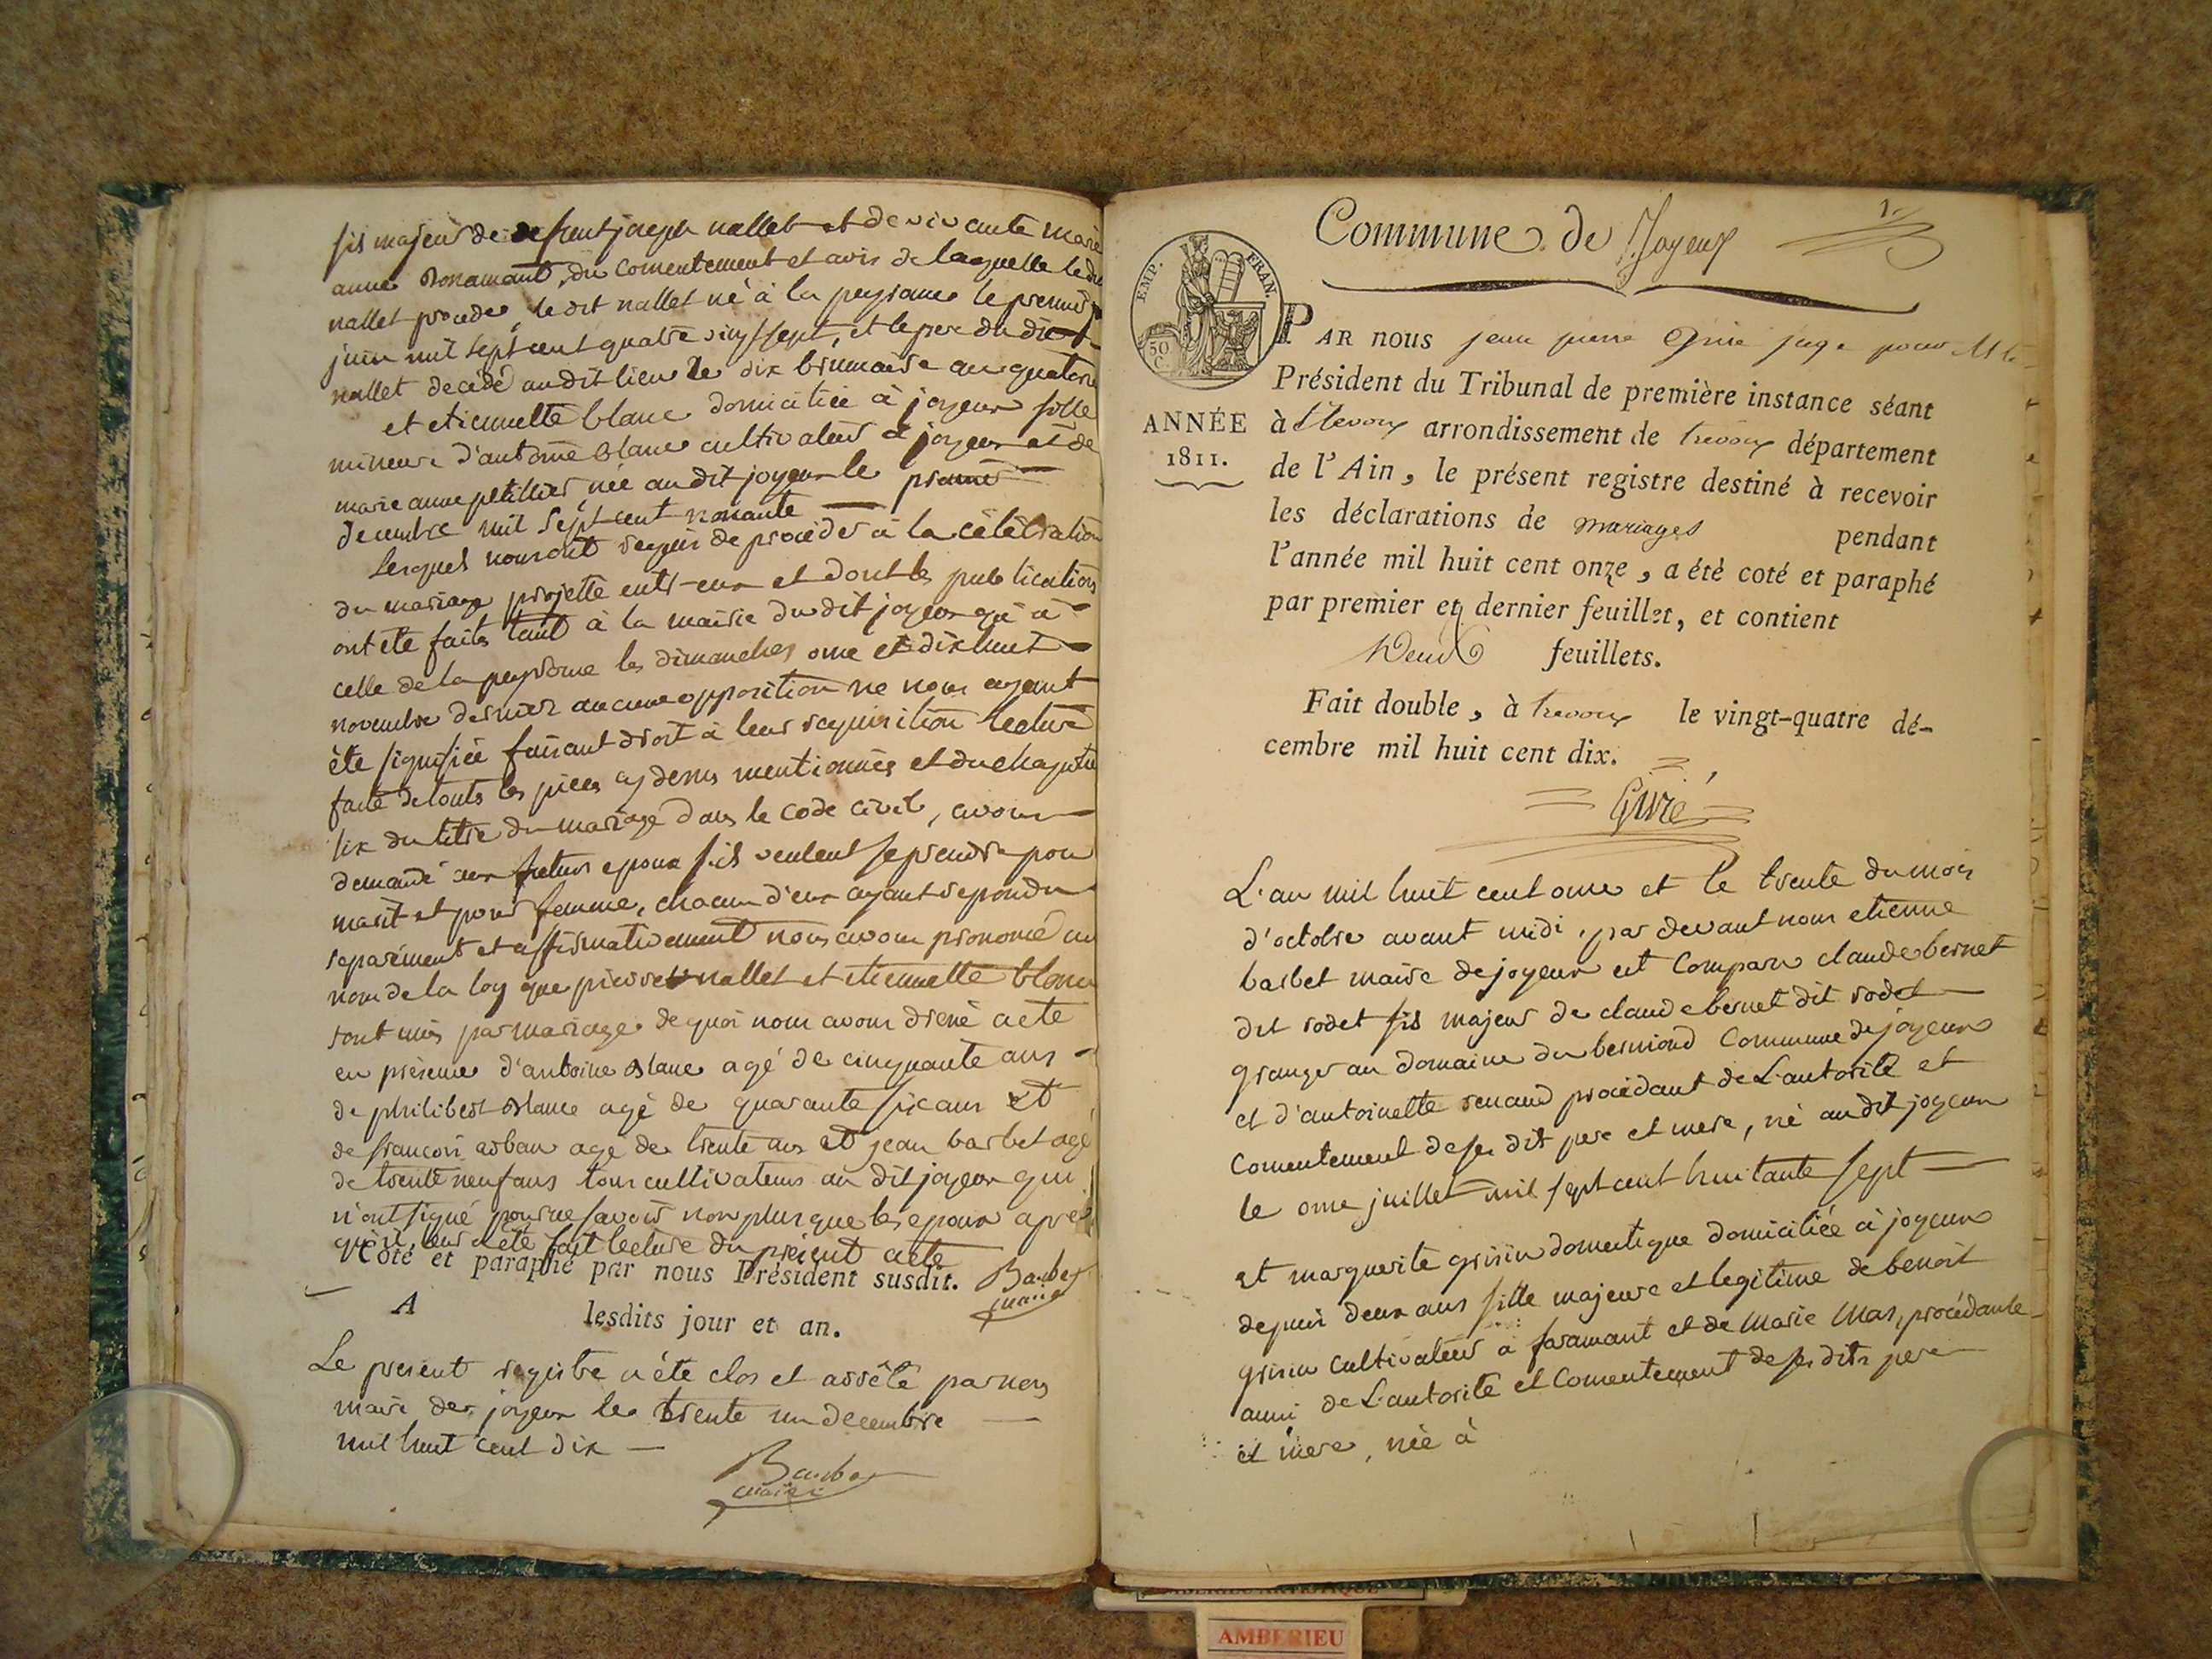 fils majeur de defeunt joseph nallet et de vivante marie
anne Bonamant, du consentement et avis de laquelle ledit
nallet procede, le dit nallet né à la peyrouse le premier
juin mil sept cent quatre vingt sept, et le pere du dit
nallet decédé audit lieu le dix brumaire an quatorze
et etiennette blanc domiciliée à joyeux fille
mineure d'antoine blanc cultivateur à joyeux et de
marie anne petillier, née au dit joyeux le premier
decembre mil sept cent nonante
Lesquels nous ont requis de procéder à la célébration
du mariage projetté entr-eux et dont les publications
ont été faites tant à la mairie du dit joyeux qu'à
celle de la peyrouse les dimanches onze et dix huit
novembre dernier aucune opposition ne nous ayant
été signifiée faisant droit à leur requisition lecture
faite de touts les pieces cy dessus mentionnées et du chapitre
six du titre du mariage dans le code civil, avons
demandé aux futurs epoux s'ils veulent se prendre pour
marit et pour femme, chacun d'eux ayant repondu
separément et affirmativement nous avons prononcé au
nom de la loy que pierre nallet et etiennette blanc
sont unis par mariage de quoi nous avons dressé acte
en présence d'antoine blanc agé de cinquante ans
de philibert blanc agé de quarante six ans et
de françois orban agé de trente ans et jean barbet agé
de trente neuf ans tous cultivateurs au dit joyeux qui
n'ont signé pour ne savoir non plus que les epoux après
qu'il leur a été fait lecture du présent acte
Coté et paraphé par nous Président susdit. Barbet
maire
A lesdits jour et an.
Le present registre a été clos et arrêté par nous
maire de joyeux le trente un decembre
mil huit cent dix
Barbet
maire
Commune de Joyeux
1.er
EMP. FRAN.
50 C.
PAR nous jean pierre Giriè juge pour M. le
Président du Tribunal de première instance séant
ANNÉE
1811.
à trevoux arrondissement de trevoux département
de l'Ain, le présent registre destiné à recevoir
les déclarations de mariages pendant
l'année mil huit cent onze, a été coté et paraphé
par premier et dernier feuillet, et contient
Deux feuillets.
Fait double, à trevoux le vingt-quatre dé-
cembre mil huit cent dix.
Giriè
L'an mil huit cent onze et le trente du mois
d'octobre avant midi, par devant nous etienne
barbet maire de joyeux est comparu claude bernet
dit rodet fils majeur de claude bernet dit rodet
granger au domaine du berniond Commune de joyeux
et d'antoinette renaud procédant de L'autorité et
Consentement de ses dit pere et mere, né au dit joyeux
le onze juillet mil sept cent huitante sept
et marguerite grisin domestique domiciliée à joyeux
depuis deux ans fille majeure et legitime de benoit
grisin cultivateur à faramant et de Marie Mas, procédante
aussi de L'autorité et Consentement de ses dits pere
et mere, née à
AMBERIEU